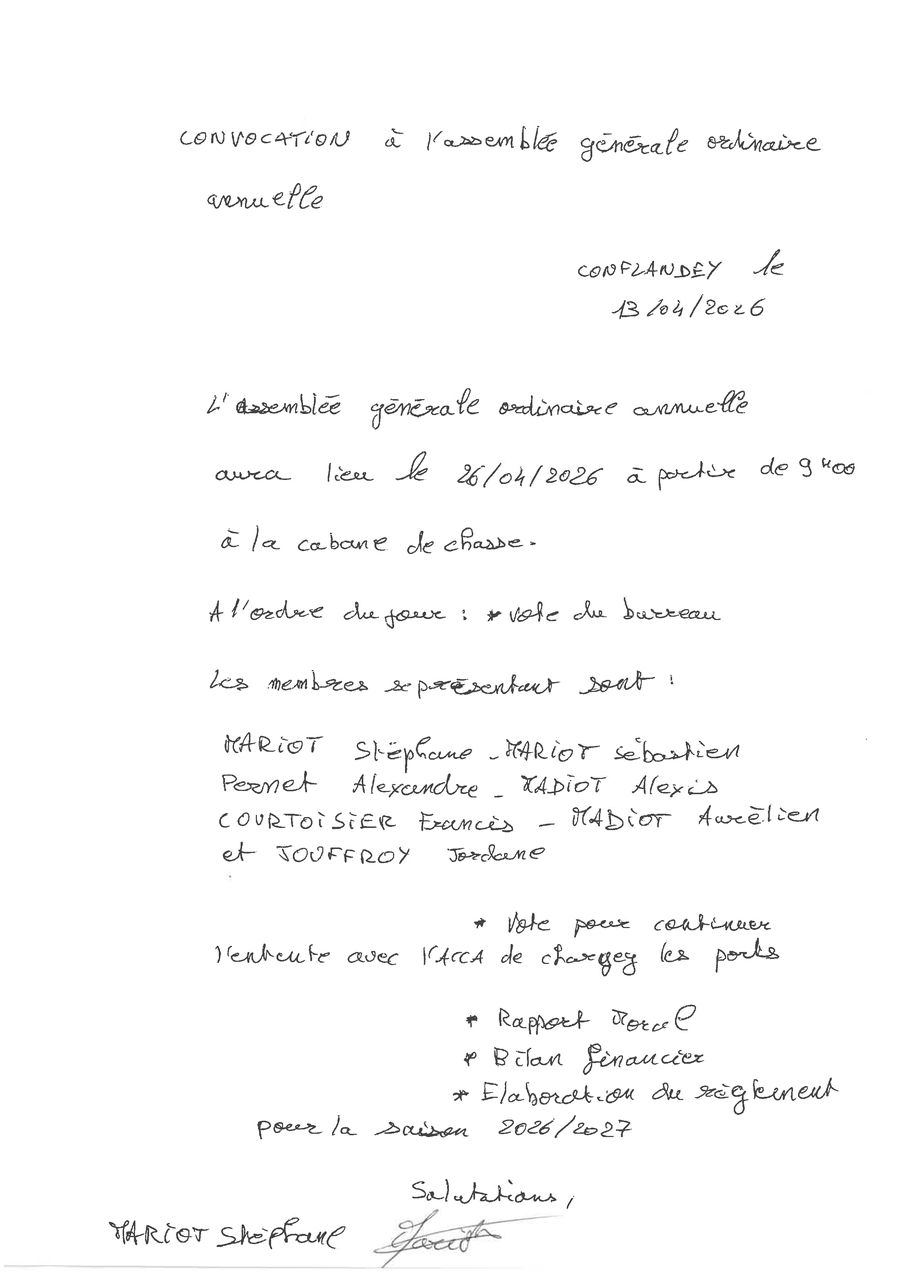 CONVOCATION à l'assemblée générale ordinaire
annuelle
CONFLANDEY le
13/04/2026
L'assemblée générale ordinaire annuelle
aura lieu le 26/04/2026 à partir de 9h00
à la cabane de chasse.
A l'ordre du jour : * vote du burreau
Les membres se présentant sont :
MARIOT Stéphane - MARIOT Sébastien
Pernet Alexandre - MADIOT Alexis
COURTOISIER Francis - MADIOT Aurélien
et JOUFFROY Jordane
* Vote pour continuer
l'entente avec l'ACCA de chargey les ports
* Rapport Moral
* Bilan financier
* Elaboration du règlement
pour la saison 2026/2027
Salutations,
MARIOT Stéphane